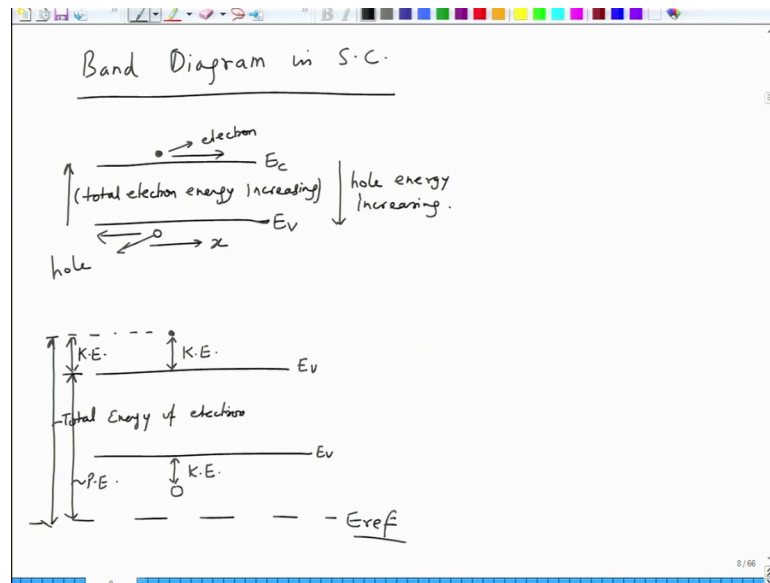 Band Diagram in S.C.
electron
Ec
(total electron energy increasing)
hole energy
increasing.
Ev
x
hole
K.E.
K.E.
Ev
Total Energy of electron
Ev
K.E.
P.E.
Eref
8 / 66